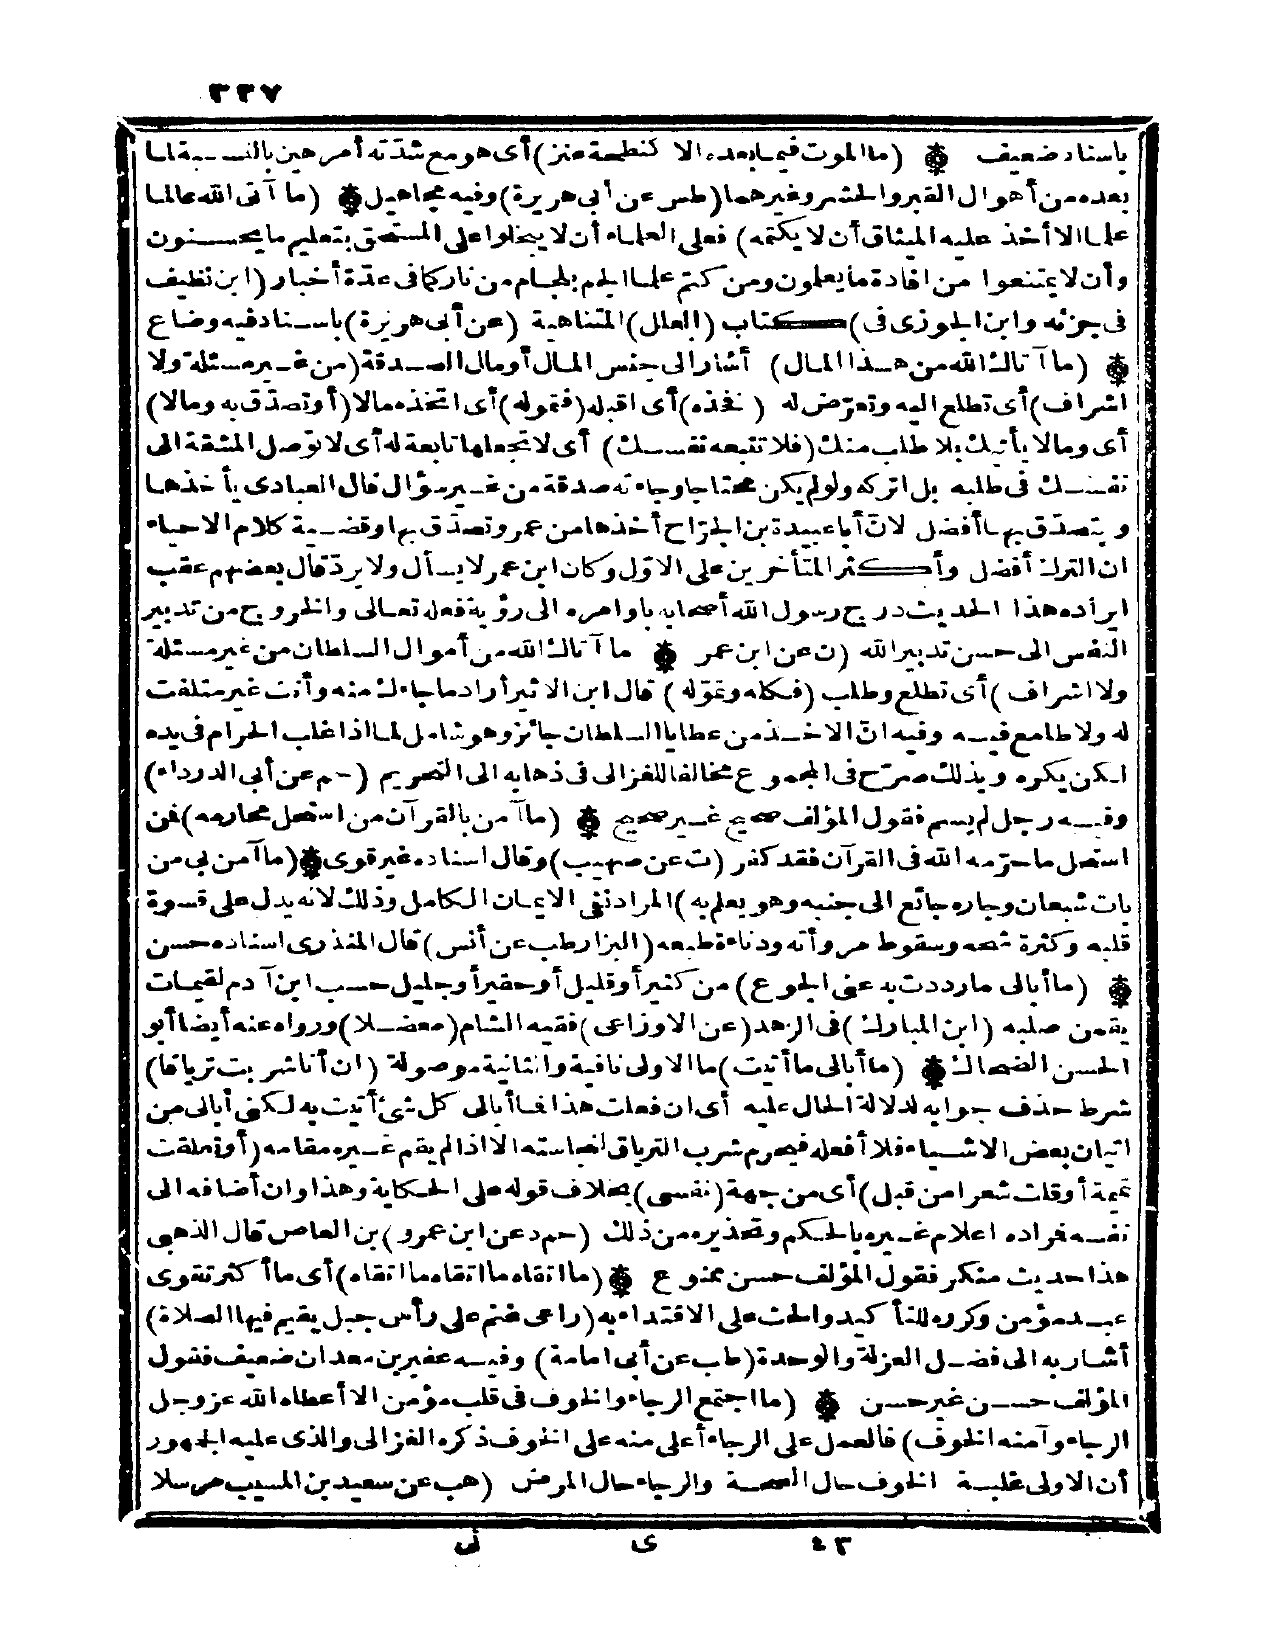 ٣٣٧
باسناد ضعيف ۞ (ما الموت فيما بعده الا كنطحة عنز) أى هو مع شدّته أمر هين بالنسبة لما
بعده من أهوال القبر والحشر وغيرهما (طس عن أبى هريرة) وفيه مجاهيل ۞ (ما آتى الله عالما
علما الا أخذ عليه الميثاق أن لا يكتمه) فعلى العلماء أن لا يبخلوا على المستحق بتعليم ما يحسنون
وأن لا يمتنعوا من افادة ما يعلمون ومن كتم علما الجم بلجام من نار كما فى عدّة أخبار (ابن نظيف
فى جزئه وابن الجوزى فى) كتاب (العلل) المتناهية (عن أبى هريرة) باسناد فيه وضاع
۞ (ما آتاك الله من هذا المال) أشار الى جنس المال أو مال الصدقة (من غير مسئلة ولا
اشراف) أى تطلع اليه وتعرّض له (فخذه) أى اقبله (فتموّله) أى اتخذه مالا (أو تصدّق به ومالا)
أى وما لا يأتيك بلا طلب منك (فلا تتبعه نفسك) أى لا تجعلها تابعة له أى لا توصل المشقة الى
نفسك فى طلبه بل اتركه ولو لم يكن محتاجا وجاءته صدقة من غير سؤال قال العبادى يأخذها
ويتصدّق بها أفضل لانّ أبا عبيدة بن الجرّاح أخذها من عمر وتصدّق بها وقضية كلام الاحياء
ان الترك أفضل وأكثر المتأخرين على الاوّل وكان ابن عمر لا يسأل ولا يردّ قال بعضهم عقب
ايراده هذا الحديث درج رسول الله أصحابه باوامره الى رؤية فعله تعالى والخروج من تدبير
النفس الى حسن تدبير الله (ن عن ابن عمر ۞ ما آتاك الله من أموال السلطان من غير مسئلة
ولا اشراف) أى تطلع وطلب (فكله وتموّله) قال ابن الاثير أراد ما جاءك منه وأنت غير متلفت
له ولا طامع فيه وفيه انّ الاخذ من عطايا السلطان جائز وهو شامل لما اذا غلب الحرام فى يده
لكن يكره وبذلك صرّح فى المجموع مخالفا للغزالى فى ذهابه الى التحريم (حم عن أبى الدرداء)
وفيه رجل لم يسم فقول المؤلف صحيح غير صحيح ۞ (ما آمن بالقرآن من استحل محارمه) فمن
استحل ما حرّمه الله فى القرآن فقد كفر (ت عن صهيب) وقال اسناده غير قوى ۞ (ما آمن بى من
بات شبعان وجاره جائع الى جنبه وهو يعلم به) المراد نفى الايمان الكامل وذلك لانه يدل على قسوة
قلبه وكثرة شحه وسقوط مروأته ودناءة طبعه (البزار طب عن أنس) قال المنذرى اسناده حسن
۞ (ما أبالى ما رددت به عنى الجوع) من كثير أو قليل أو حقير أو جليل حسب ابن آدم لقيمات
يقمن صلبه (ابن المبارك) فى الزهد (عن الاوزاعى) فقيه الشام (معضلا) ورواه عنه أيضا أبو
الحسن الضحاك ۞ (ما أبالى ما أتيت) ما الاولى نافية والثانية موصولة (ان أنا شربت ترياقا)
شرط حذف جوابه لدلالة الحال عليه أى ان فعلت هذا فما أبالى كل شئ أتيت به لكنى أبالى من
اتيان بعض الاشياء فلا أفعله فيحرم شرب الترياق لنجاسته الا اذا لم يقم غيره مقامه (أو تعلقت
تميمة أو قلت شعرا من قبل) أى من جهة (نفسى) بخلاف قوله على الحكاية وهذا وان أضافه الى
نفسه فراده اعلام غيره بالحكم وتحذيره من ذلك (حم د عن ابن عمرو) بن العاص قال الذهبى
هذا حديث منكر فقول المؤلف حسن ممنوع ۞ (ما اتقاه ما اتقاه ما اتقاه) أى ما أكثر تقوى
عبد مؤمن وكرره للتأكيد والحث على الاقتداء به (راعى غنم على رأس جبل يقيم فيها الصلاة)
أشار به الى فضل العزلة والوحدة (طب عن أبى امامة) وفيه عفير بن معدان ضعيف فقول
المؤلف حسن غير حسن ۞ (ما اجتمع الرجاء والخوف فى قلب مؤمن الا أعطاه الله عز وجل
الرجاء وآمنه الخوف) فالعمل على الرجاء أعلى منه على الخوف ذكره الغزالى والذى عليه الجمهور
أن الاولى غلبة الخوف حال الصحة والرجاء حال المرض (هب عن سعيد بن المسيب مرسلا
٤٣ ى نى